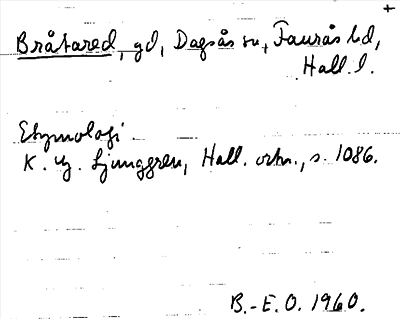 +
Bråtared, gd, Dagsås sn, Faurås hd,
Hall. l.
Etymologi
K. G. Ljunggren, Hall. ortn., s. 1086.
B.-E. O. 1960.